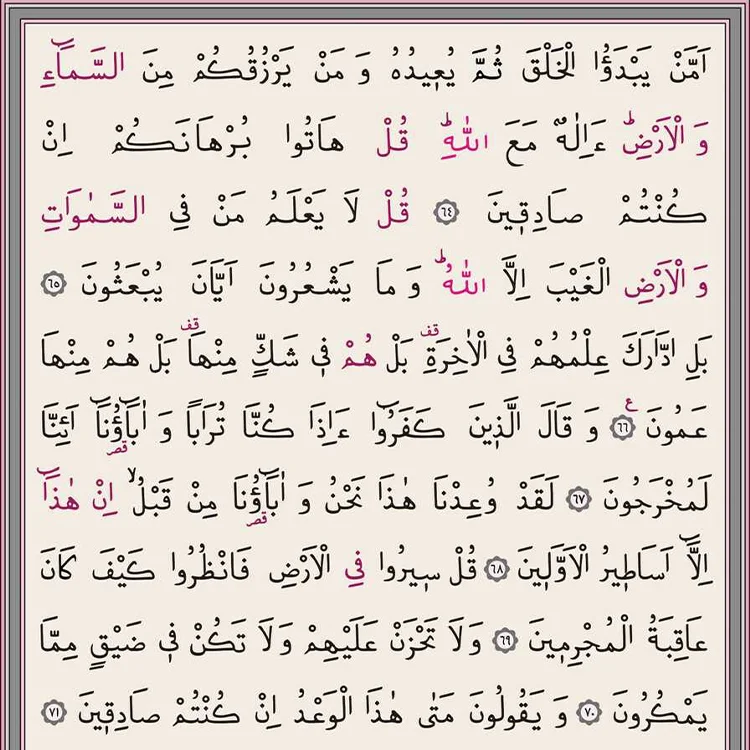 اَمَّنْ يَبْدَؤُا الْخَلْقَ ثُمَّ يُعٖيدُهُ وَ مَنْ يَرْزُقُكُمْ مِنَ السَّمَٓاءِ
وَ الْاَرْضِؕ ءَاِلٰهٌ مَعَ اللّٰهِؕ قُلْ هَاتُوا بُرْهَانَكُمْ اِنْ
كُنْتُمْ صَادِقٖينَ ﴿٦٤﴾ قُلْ لَا يَعْلَمُ مَنْ فِى السَّمٰوَاتِ
وَ الْاَرْضِ الْغَيْبَ اِلَّا اللّٰهُؕ وَ مَا يَشْعُرُونَ اَيَّانَ يُبْعَثُونَ ﴿٦٥﴾
بَلِ ادَّارَكَ عِلْمُهُمْ فِى الْاٰخِرَةِ قف بَلْ هُمْ فٖى شَكٍّ مِنْهَا قف بَلْ هُمْ مِنْهَا
عَمُونَ ﴿٦٦﴾ ع وَ قَالَ الَّذٖينَ كَفَرُٓوا ءَاِذَا كُنَّا تُرَابًا وَ اٰبَٓاؤُنَٓا قصر اَئِنَّا
لَمُخْرَجُونَ ﴿٦٧﴾ لَقَدْ وُعِدْنَا هٰذَا نَحْنُ وَ اٰبَٓاؤُنَا قصر مِنْ قَبْلُۙ اِنْ هٰذَٓا
اِلَّٓا اَسَاطٖيرُ الْاَوَّلٖينَ ﴿٦٨﴾ قُلْ سٖيرُوا فِى الْاَرْضِ فَانْظُرُوا كَيْفَ كَانَ
عَاقِبَةُ الْمُجْرِمٖينَ ﴿٦٩﴾ وَلَا تَحْزَنْ عَلَيْهِمْ وَلَا تَكُنْ فٖى ضَيْقٍ مِمَّا
يَمْكُرُونَ ﴿٧٠﴾ وَ يَقُولُونَ مَتٰى هٰذَا الْوَعْدُ اِنْ كُنْتُمْ صَادِقٖينَ ﴿٧١﴾